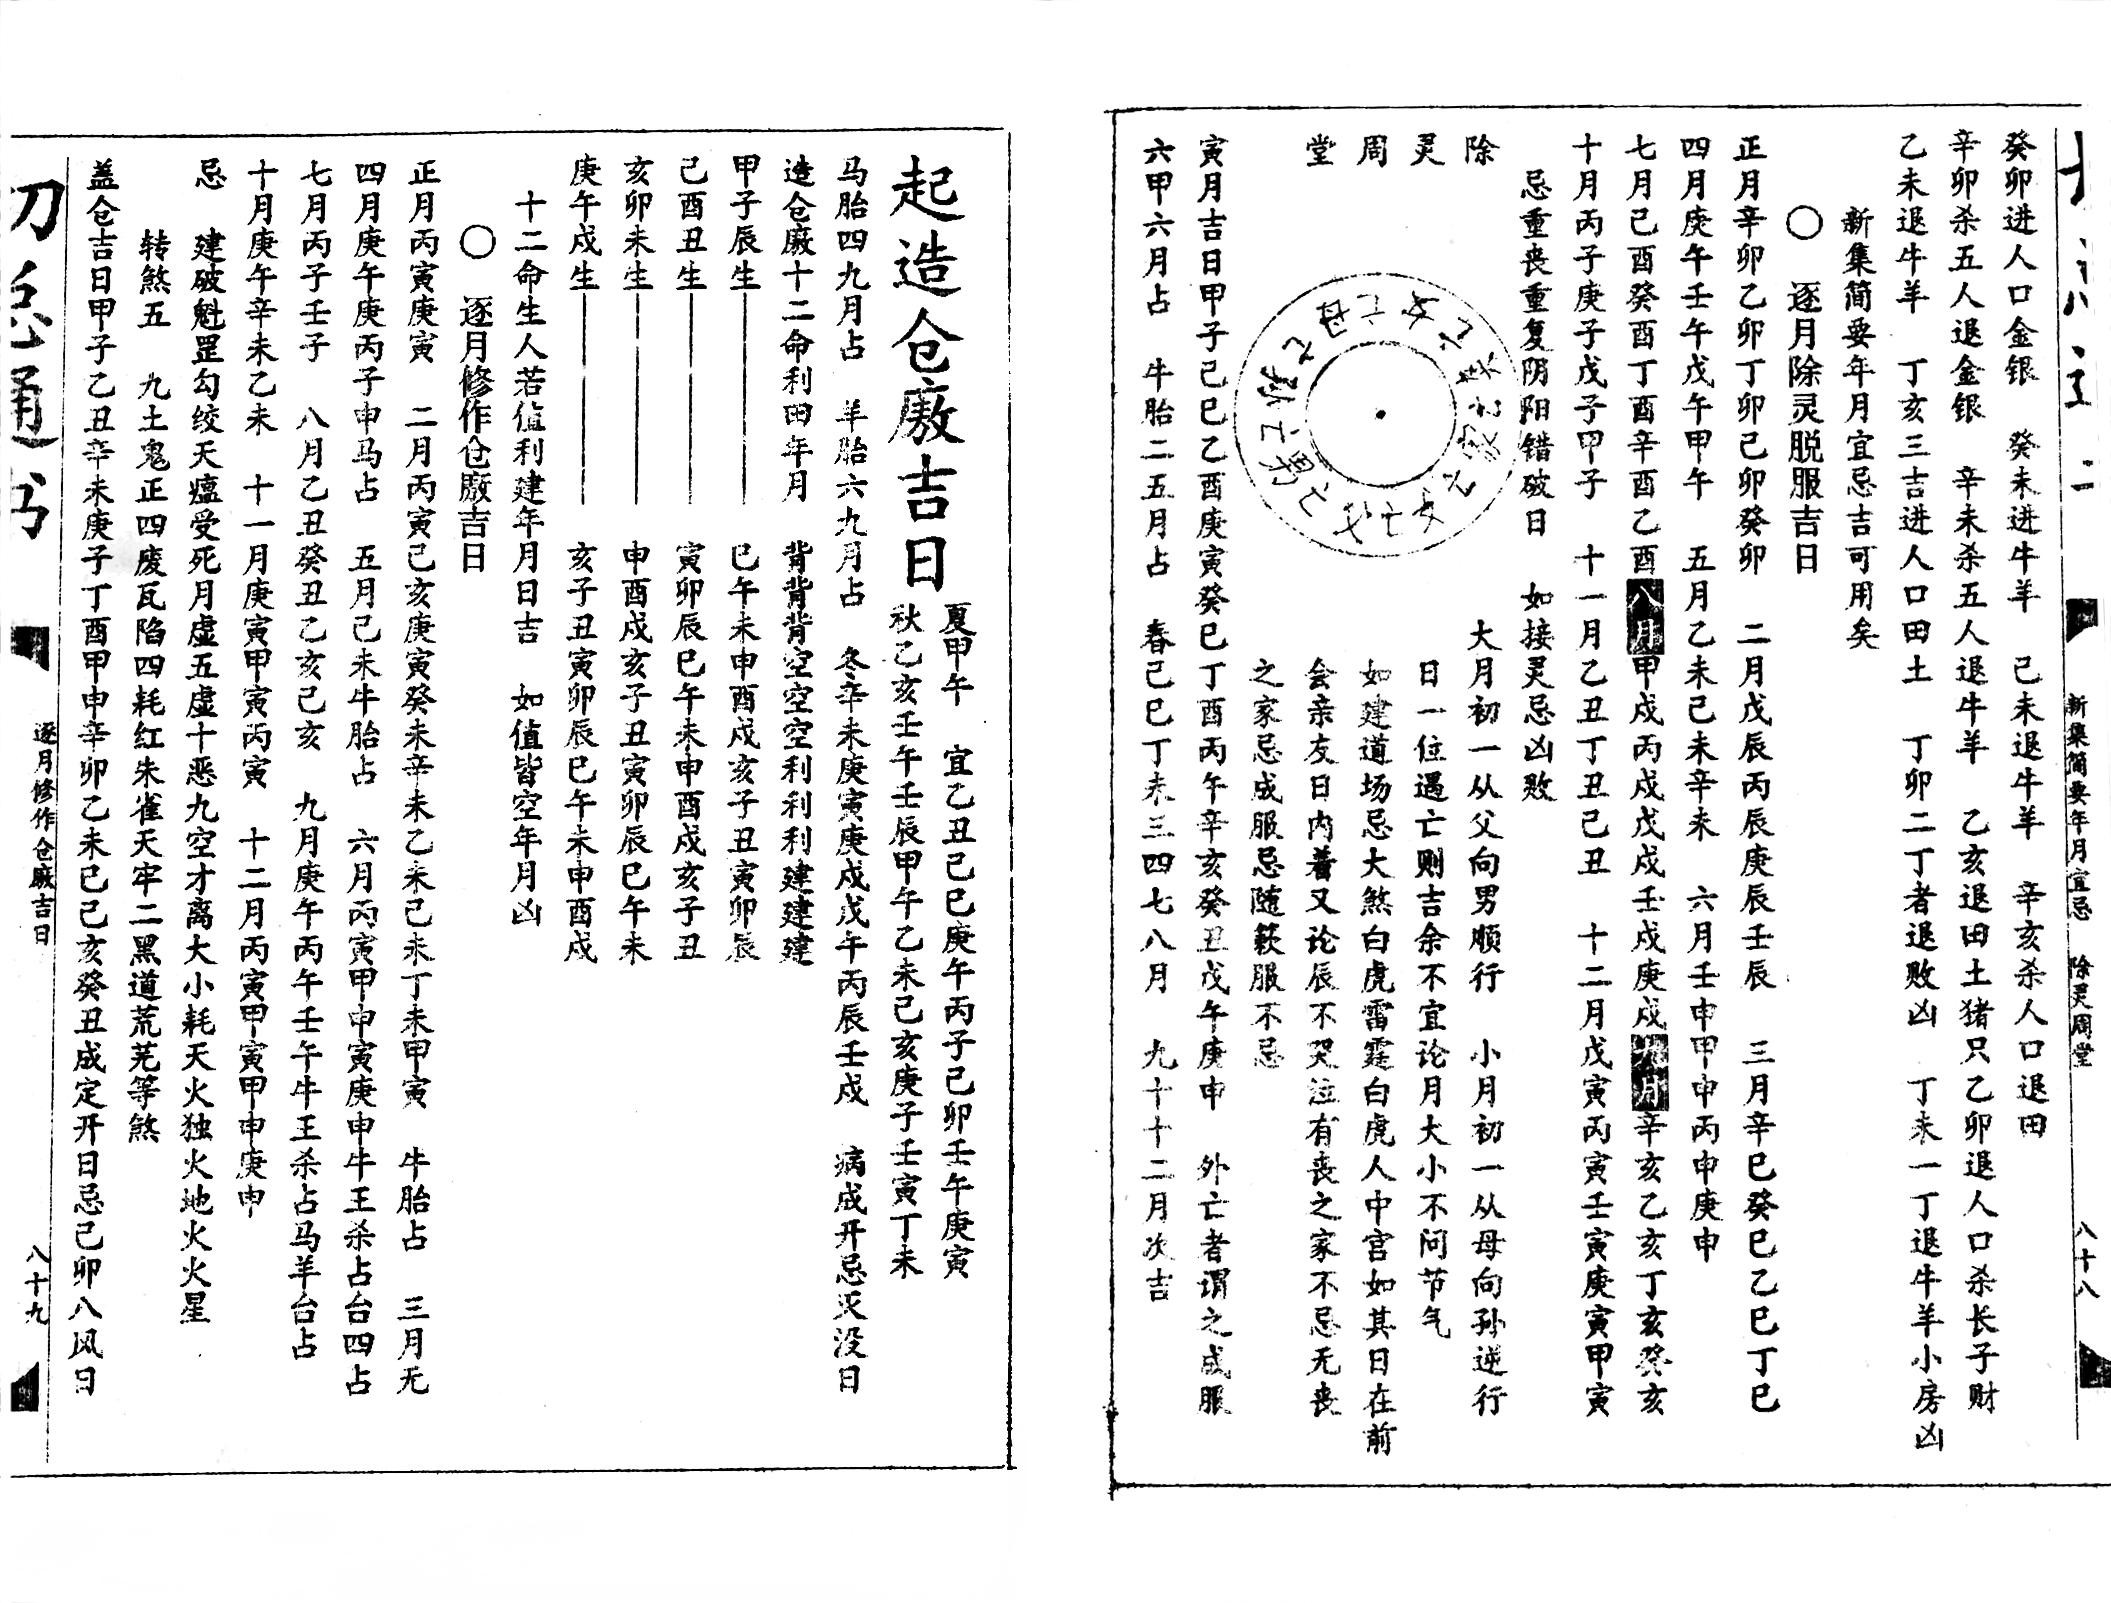 癸卯进人口金银　癸未进牛羊　己未退牛羊　辛亥杀人口退田
辛卯杀五人退金银　辛未杀五人退牛羊　乙亥退田土猪只乙卯退人口杀长子财
乙未退牛羊　丁亥三吉进人口田土　丁卯二丁者退败凶　丁未一丁退牛羊小房凶
新集简要年月宜忌吉可用矣
○　逐月除灵脱服吉日
正月辛卯乙卯丁卯己卯癸卯　二月戊辰丙辰庚辰壬辰　三月辛巳癸巳乙巳丁巳
四月庚午壬午戊午甲午　五月乙未己未辛未　六月壬申甲申丙申庚申
七月己酉癸酉丁酉辛酉乙酉八月甲戌丙戌戊戌壬戌庚戌九月辛亥乙亥丁亥癸亥
十月丙子庚子戊子甲子　十一月乙丑丁丑己丑　十二月戊寅丙寅壬寅庚寅甲寅
忌重丧重复阴阳错破日　如接灵忌凶败
除灵周堂
大月初一从父向男顺行　小月初一从母向孙逆行
日一位遇亡则吉余不宜论月大小不问节气
如建道场忌大煞白虎雷霆白虎人中宫如其日在前
会亲友日内着又论辰不哭泣有丧之家不忌无丧
之家忌成服忌随簌服不忌
寅月吉日甲子己巳乙酉庚寅癸巳丁酉丙午辛亥癸丑戊午庚申　外亡者谓之成服
六甲六月占　牛胎二五月占　春己巳丁未三四七八月　九十十二月次吉
新集简要年月宜忌　除灵周堂
八十八
起造仓廒吉日
夏甲午　宜乙丑己巳庚午丙子己卯壬午庚寅
秋乙亥壬午壬辰甲午乙未己亥庚子壬寅丁未
马胎四九月占　羊胎六九月占　冬辛未庚寅庚戌戊午丙辰壬戌　病成开忌灭没日
造仓廒十二命利田年月　背背背空空空利利利建建建
甲子辰生　巳午未申酉戌亥子丑寅卯辰
己酉丑生　寅卯辰巳午未申酉戌亥子丑
亥卯未生　申酉戌亥子丑寅卯辰巳午未
庚午戌生　亥子丑寅卯辰巳午未申酉戌
十二命生人若值利建年月日吉　如值皆空年月凶
○　逐月修作仓廒吉日
正月丙寅庚寅　二月丙寅己亥庚寅癸未辛未乙未己未丁未甲寅　牛胎占　三月无
四月庚午庚丙子申马占　五月己未牛胎占　六月丙寅甲申寅庚申牛王杀占台四占
七月丙子壬子　八月乙丑癸丑乙亥己亥　九月庚午丙午壬午牛王杀占马羊台占
十月庚午辛未乙未　十一月庚寅甲寅丙寅　十二月丙寅甲寅甲申庚申
忌　建破魁罡勾绞天瘟受死月虚五虚十恶九空才离大小耗天火独火地火火星
转煞五　九土鬼正四废瓦陷四耗红朱雀天牢二黑道荒芜等煞
盖仓吉日甲子乙丑辛未庚子丁酉甲申辛卯乙未己己亥癸丑成定开日忌己卯八风日
逐月修作仓廒吉日
八十九